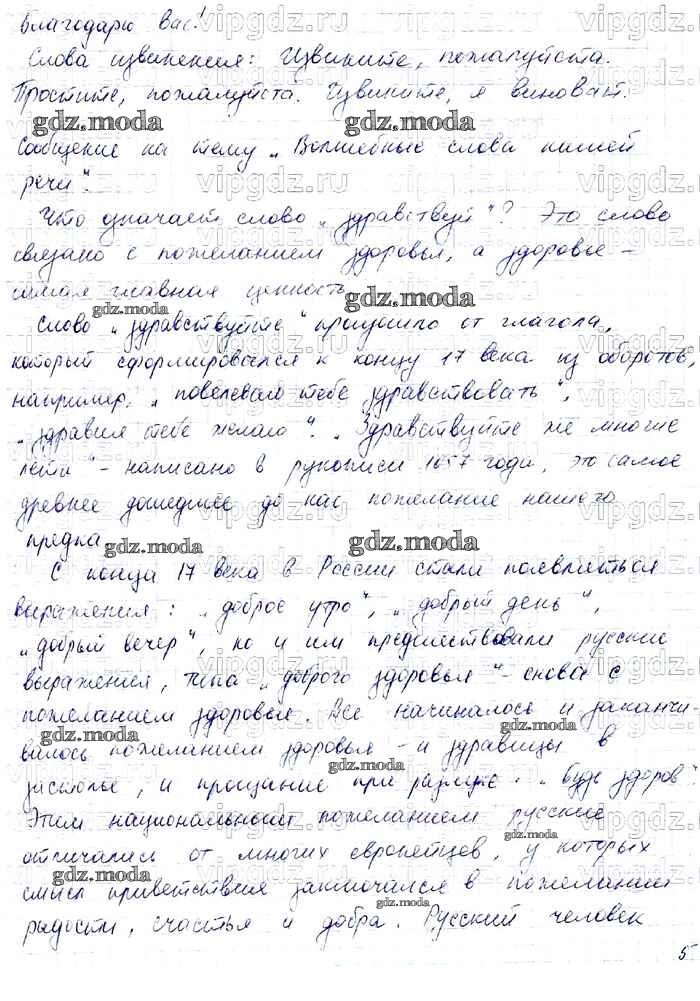 Благодарю Вас!
Слова извинения: Извините, пожалуйста.
Простите, пожалуйста. Извините, я виноват.
Сообщение на тему „Волшебные слова нашей
речи“.
Что означает слово „здравствуй“? Это слово
связано с пожеланием здоровья, а здоровье –
самая главная ценность
Слово „здравствуйте“ произошло от глагола,
который сформировался к концу 17 века из оборотов,
например: „повелеваю тебе здравствовать“,
„здравия тебе желаю“. „Здравствуйте же многие
лета“ – написано в рукописи 1057 года, это самое
древнее дошедшее до нас пожелание нашего
предка
С конца 17 века в России стали появляться
выражения: „доброе утро“, „добрый день“,
„добрый вечер“, но и им предшествовали русские
выражения, типа „доброго здоровья“ – снова с
пожеланием здоровья. Все начиналось и заканчи-
валось пожеланием здоровья – и здравицы в
застолье, и прощание при разлуке: „Будь здоров“
Этим национальным пожеланием русские
отличались от многих европейцев, у которых
смысл приветствия заключался в пожелании
радости, счастья и добра. Русский человек
5
gdz.moda
vipgdz.ru